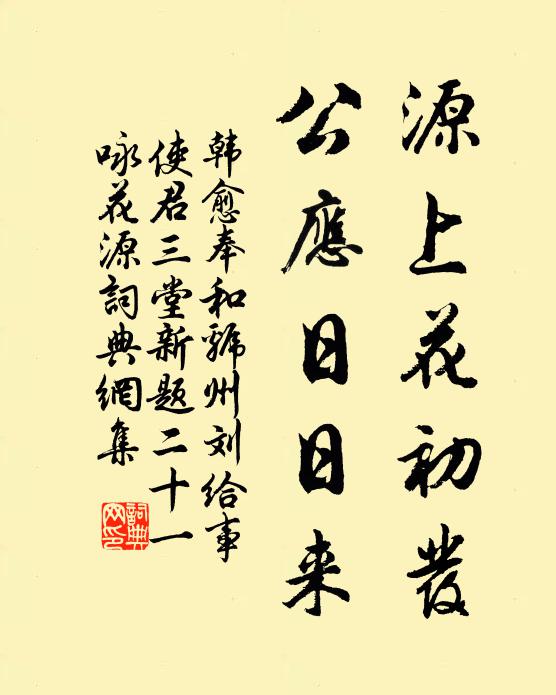 源上花初發
公應日日来
韩愈奉和虢州刘给事
使君三堂新題二十一
咏花源詞典網集
詞典
网印